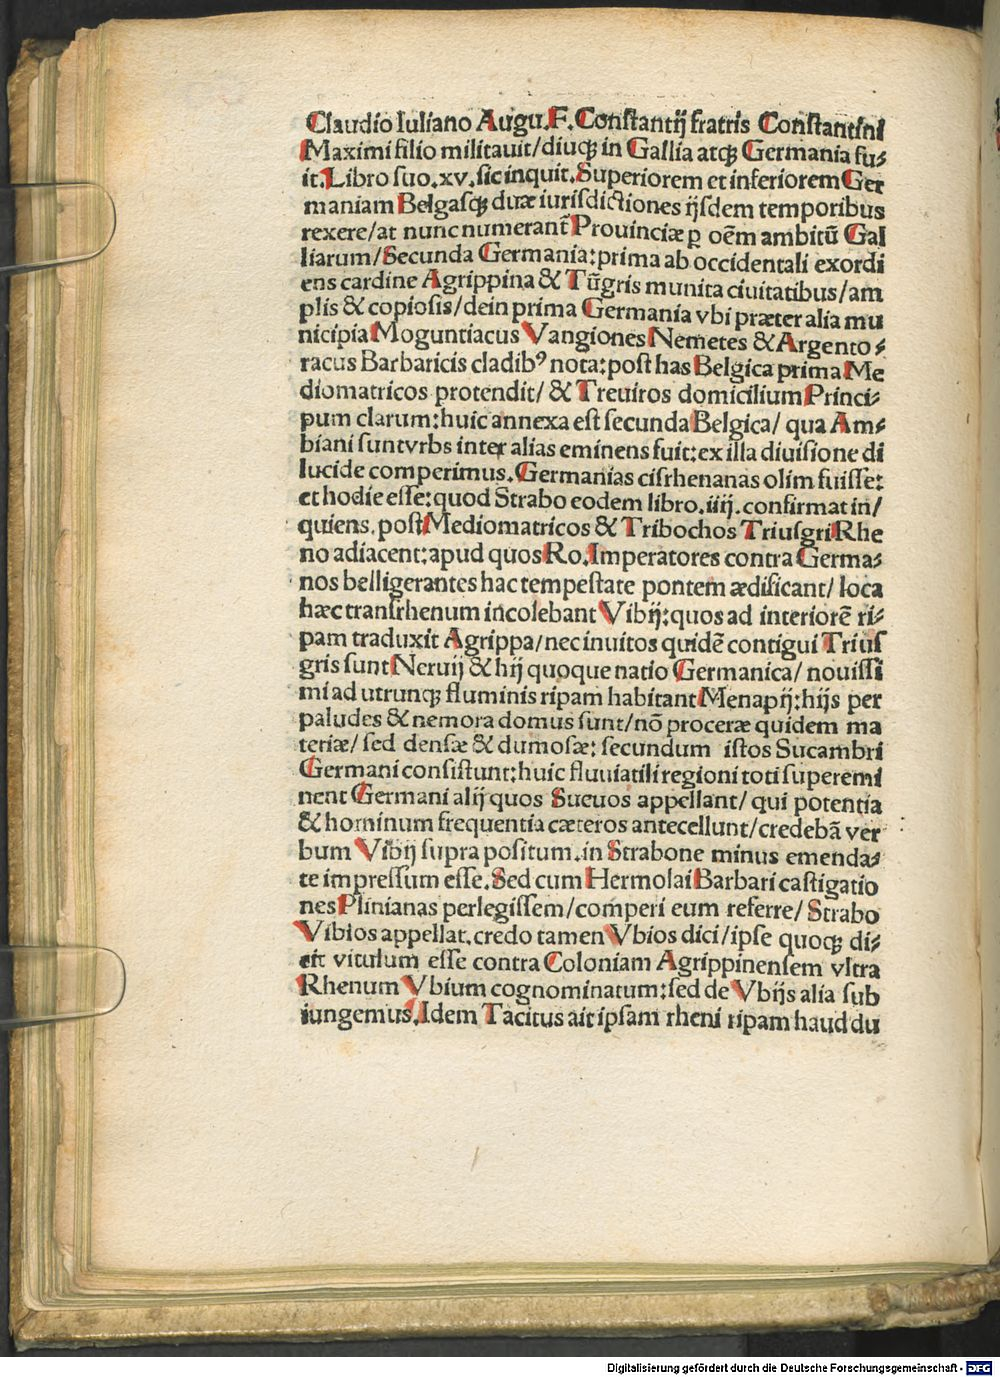 Claudio Iuliano Augu. F. Constantij fratris Constantini
Maximi filio militauit/diuqꝫ in Gallia atqꝫ Germania fu⸗
it. Libro suo. xv. sic inquit. Superiorem et inferiorem Ger
maniam Belgasqꝫ duæ iurisdictiones ijsdem temporibus
rexere/at nunc numerant᷑ Prouinciæ ꝑ oēm ambitū Gal
liarum/Secunda Germania: prima ab occidentali exordi
ens cardine Agrippina & Tūgris munita ciuitatibus/am
plis & copiosis/dein prima Germania vbi præter alia mu
nicipia Moguntiacus Vangiones Nemetes & Argento⸗
racus Barbaricis cladibꝰ nota: post has Belgica prima Me
diomatricos protendit/ & Treuiros domicilium Princi⸗
pum clarum: huic annexa est secunda Belgica/ qua Am⸗
biani sunt vrbs inter alias eminens fuit: ex illa diuisione di
lucide comperimus. Germanias cisrhenanas olim fuisse:
et hodie esse: quod Strabo eodem libro. iiij. confirmat in/
quiens. post Mediomatricos & Tribochos Triusgri Rhe
no adiacent: apud quos Ro. Imperatores contra Germa⸗
nos belligerantes hac tempestate pontem ædificant/ loca
hæc transrhenum incolebant Vibij: quos ad interiorē ri⸗
pam traduxit Agrippa/nec inuitos quidē contigui Trius
gris sunt Neruij & hij quoque natio Germanica/ nouissi
mi ad utrunqꝫ fluminis ripam habitant Menapij: hijs per
paludes & nemora domus sunt/nō proceræ quidem ma
teriæ/ sed densæ & dumosæ: secundum istos Sucambri
Germani consistunt: huic fluuiatili regioni toti superemi
nent Germani alij quos Sueuos appellant/ qui potentia
& hominum frequentia cæteros antecellunt/credebā ver
bum Vibij supra positum. in Strabone minus emenda⸗
te impressum esse. Sed cum Hermolai Barbari castigatio
nes Plinianas perlegissem/comperi eum referre/ Strabo
Vibios appellat. credo tamen Vbios dici/ipse quoqꝫ di⸗
cit vitulum esse contra Coloniam Agrippinensem vltra
Rhenum Vbium cognominatum: sed de Vbijs alia sub
iungemus. Idem Tacitus ait ipsam rheni ripam haud du
Digitalisierung gefördert durch die Deutsche Forschungsgemeinschaft - DFG